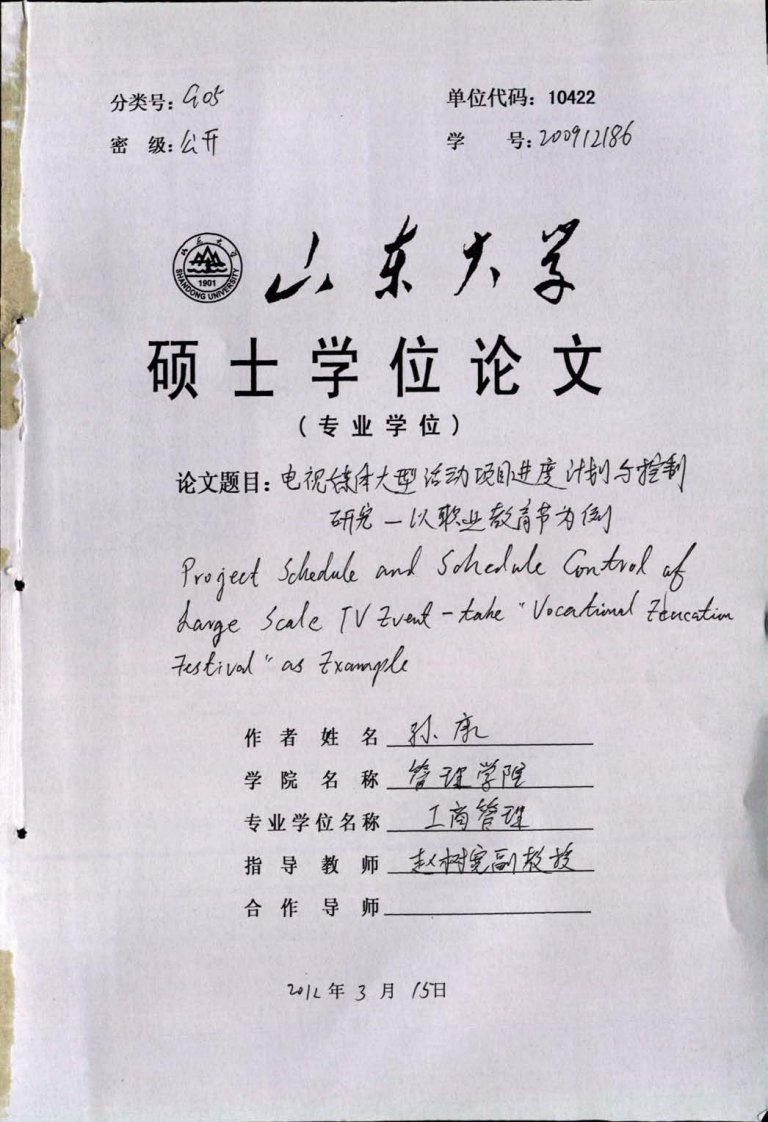 分类号：G05
单位代码：10422
密 级：公开
学 号：200912186
山东大学
SHANDONG UNIVERSITY
1901
山东大学
硕士学位论文
（专业学位）
论文题目：电视媒体大型活动项目进度计划与控制
研究－以职业教育节为例
Project Schedule and Schedule Control of
Large Scale TV Event - take "Vocational Education
Festival" as Example
作者姓名 孙康
学院名称 管理学院
专业学位名称 工商管理
指导教师 赵树宽副教授
合作导师
2012年3月15日